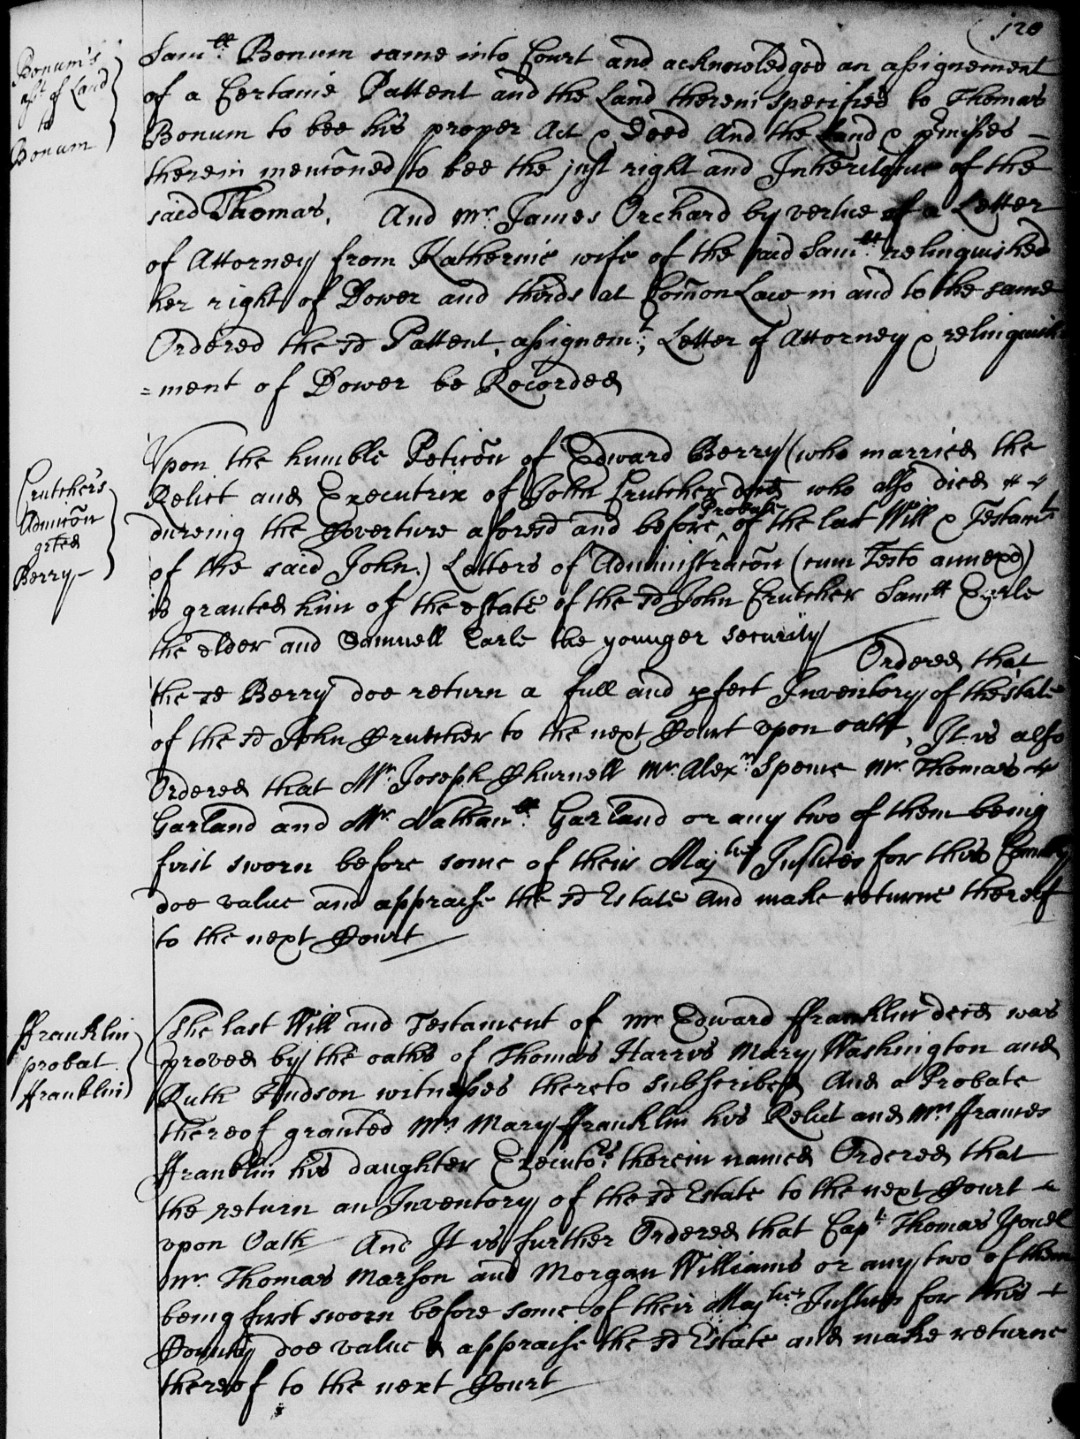 120
Bonum's
asst of Land
to
Bonum
Samll. Bonum came into Court and acknowledged an assignement
of a Certaine Pattent and the Land therein specified to Thomas
Bonum to bee his proper Act & Deed And the Land & pmisses –
therein mencōned to bee the just right and Inheritance of the
said Thomas. And Mr. James Orchard by vertue of a Letter
of Attorney from Katherine wife of the said Samll relinquished
her right of Dower and thirds at Com̄on Law in and to the same
Ordered the sd Pattent, assignemt, Letter of Attorney & relinquish
=ment of Dower be Recorded
Crutcher's
Adminōn
grted
Berry –
Vpon the humble Peticōn of Edward Berry (who married the
Relict and Executrix of John Crutcher decd who also died
dureing the Coverture aforesd and before ^Probate of the last Will & Testamt
of the said John.) Letters of Administracōn (cum Testo annexo)
is granted him of the estate of the sd John Crutcher Samll Earle
the elder and Samuell Earle the younger security
Ordered that
the sd Berry doe return a full and pfect Inventory of the state
of the sd John Crutcher to the next Court vpon oath, It is also
Ordered that Mr. Joseph Churnell Mr. Alexr. Spence Mr. Thomas
Garland and Mr. Nathanll. Garland or any two of them being
first sworn before some of their Majties Justices for this County
doe value and appraise the sd Estate and make returne thereof
to the next Court
ffranklin
probat
ffranklin
The last Will and Testament of Mr Edward ffranklin decd was
proved by the oaths of Thomas Harris Mary Washington and
Ruth Hudson witnesses thereto subscribed And a Probate
thereof granted Mrs Mary ffranklin his Relict and Mrs ffrances
ffranklin his daughter Executors therein named Ordered that
the return an Inventory of the sd Estate to the next Court
vpon Oath And It is further Ordered that Capt. Thomas Youel
Mr. Thomas Marson and Morgan Williams or any two of them
being first sworn before some of their Majties Justices for this
County doe value & appraise the sd Estate and make returne
thereof to the next Court